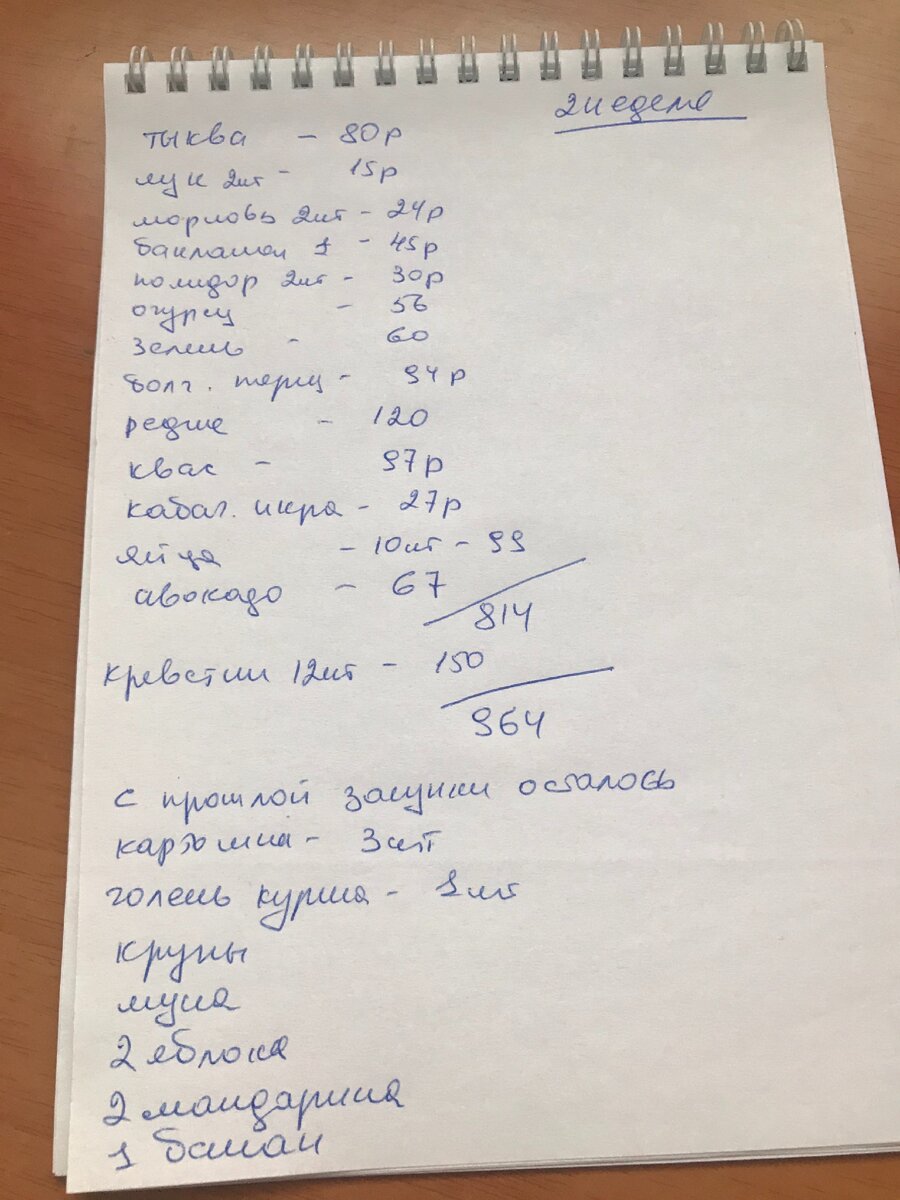 2 неделя
тыква - 80р
лук 2шт - 15р
морковь 2шт - 24р
баклажан 1 - 45р
помидор 2шт - 30р
огурец - 56
зелень - 60
болг. перец - 94р
редис - 120
квас - 97р
кабач. икра - 27р
яйца - 10шт - 99
авокадо - 67
814
креветки 12шт - 150
964
с прошлой закупки осталось
картошка - 3шт
голень курина - 1шт
крупы
мука
2 яблока
2 мандарина
1 банан